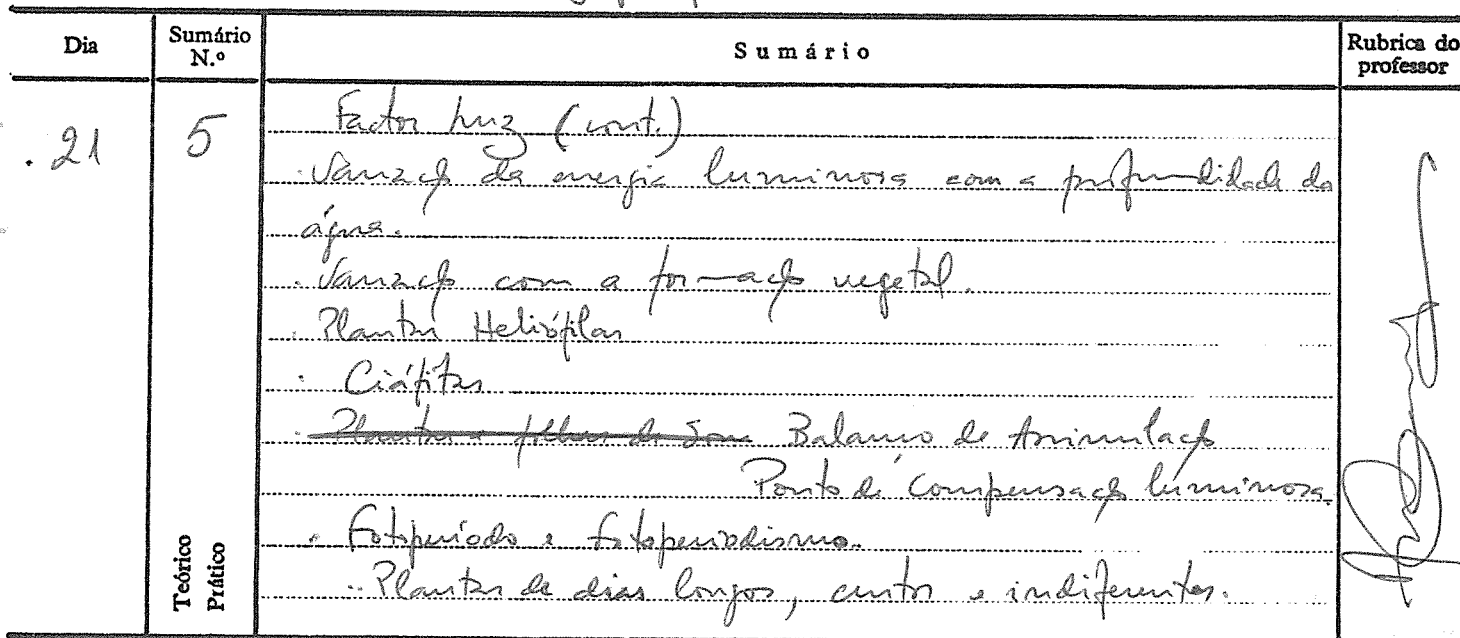 Dia Sumário N.º Sumário Rubrica do professor
. 21 5 Factor luz (cont.)
. Variação da energia luminosa com a profundidade da
água.
. Variação com a formação vegetal.
. Plantas Heliófilas
. Ciáfitas
. Plantas e folhas de Som Balanço de Assimilação
Ponto de Compensação luminosa.
. Fotoperíodo e fotoperiodismo.
.. Plantas de dias longos, curtos e indiferentes.
Teórico
Prático